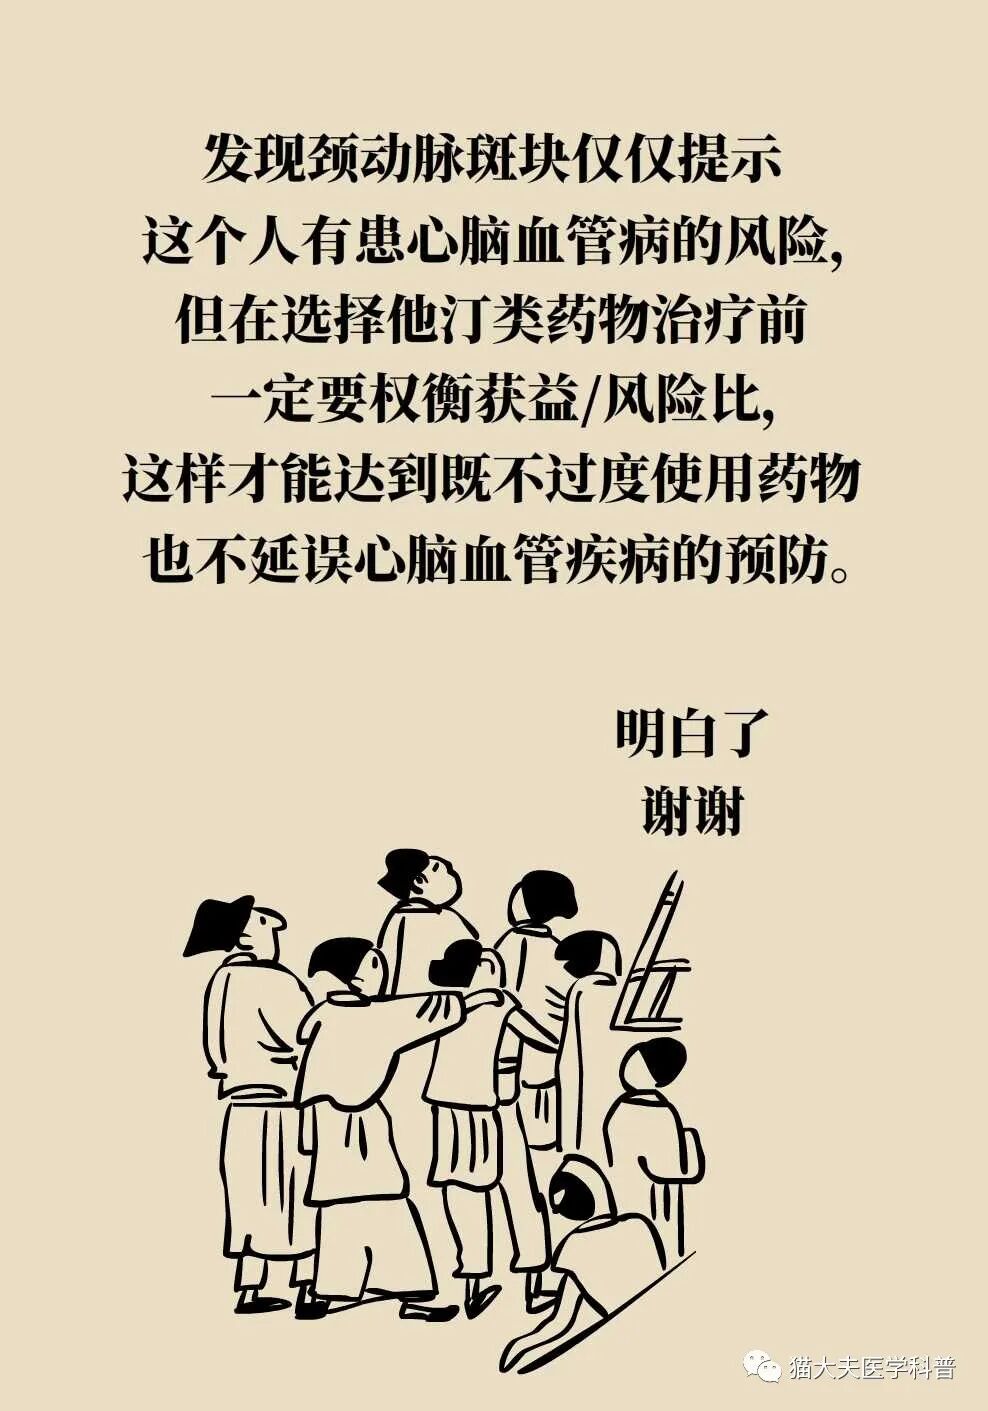 发现颈动脉斑块仅仅提示
这个人有患心脑血管病的风险,
但在选择他汀类药物治疗前
一定要权衡获益/风险比,
这样才能达到既不过度使用药物
也不延误心脑血管疾病的预防。
明白了
谢谢
猫大夫医学科普